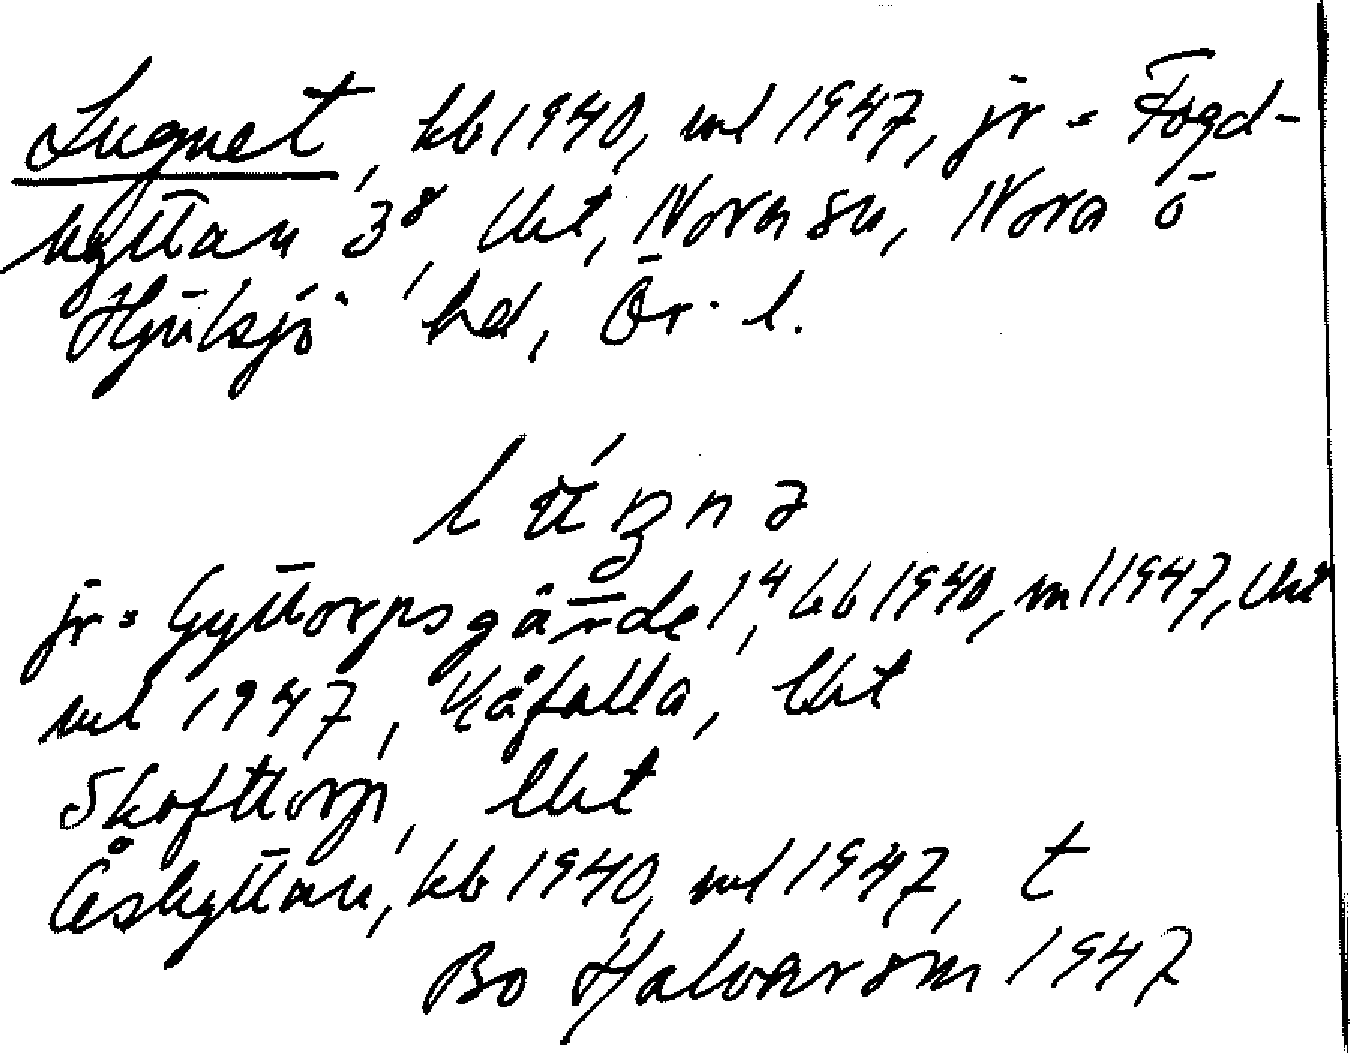 Lugnet, kb 1940, ml 1947, jr = Fogd-
hyttan 3⁸, lht, Nora sn, Nora o
Hjulsjö hd, Ör. l.
lúgnə
jr = Gyttorpsgärde 1⁴, kb 1940, ml 1947, lht
ml 1947, Kåfalla, lht
Skofttorp, lht
Åshyttan, kb 1940, ml 1947, t
Bo Halvarson 1947